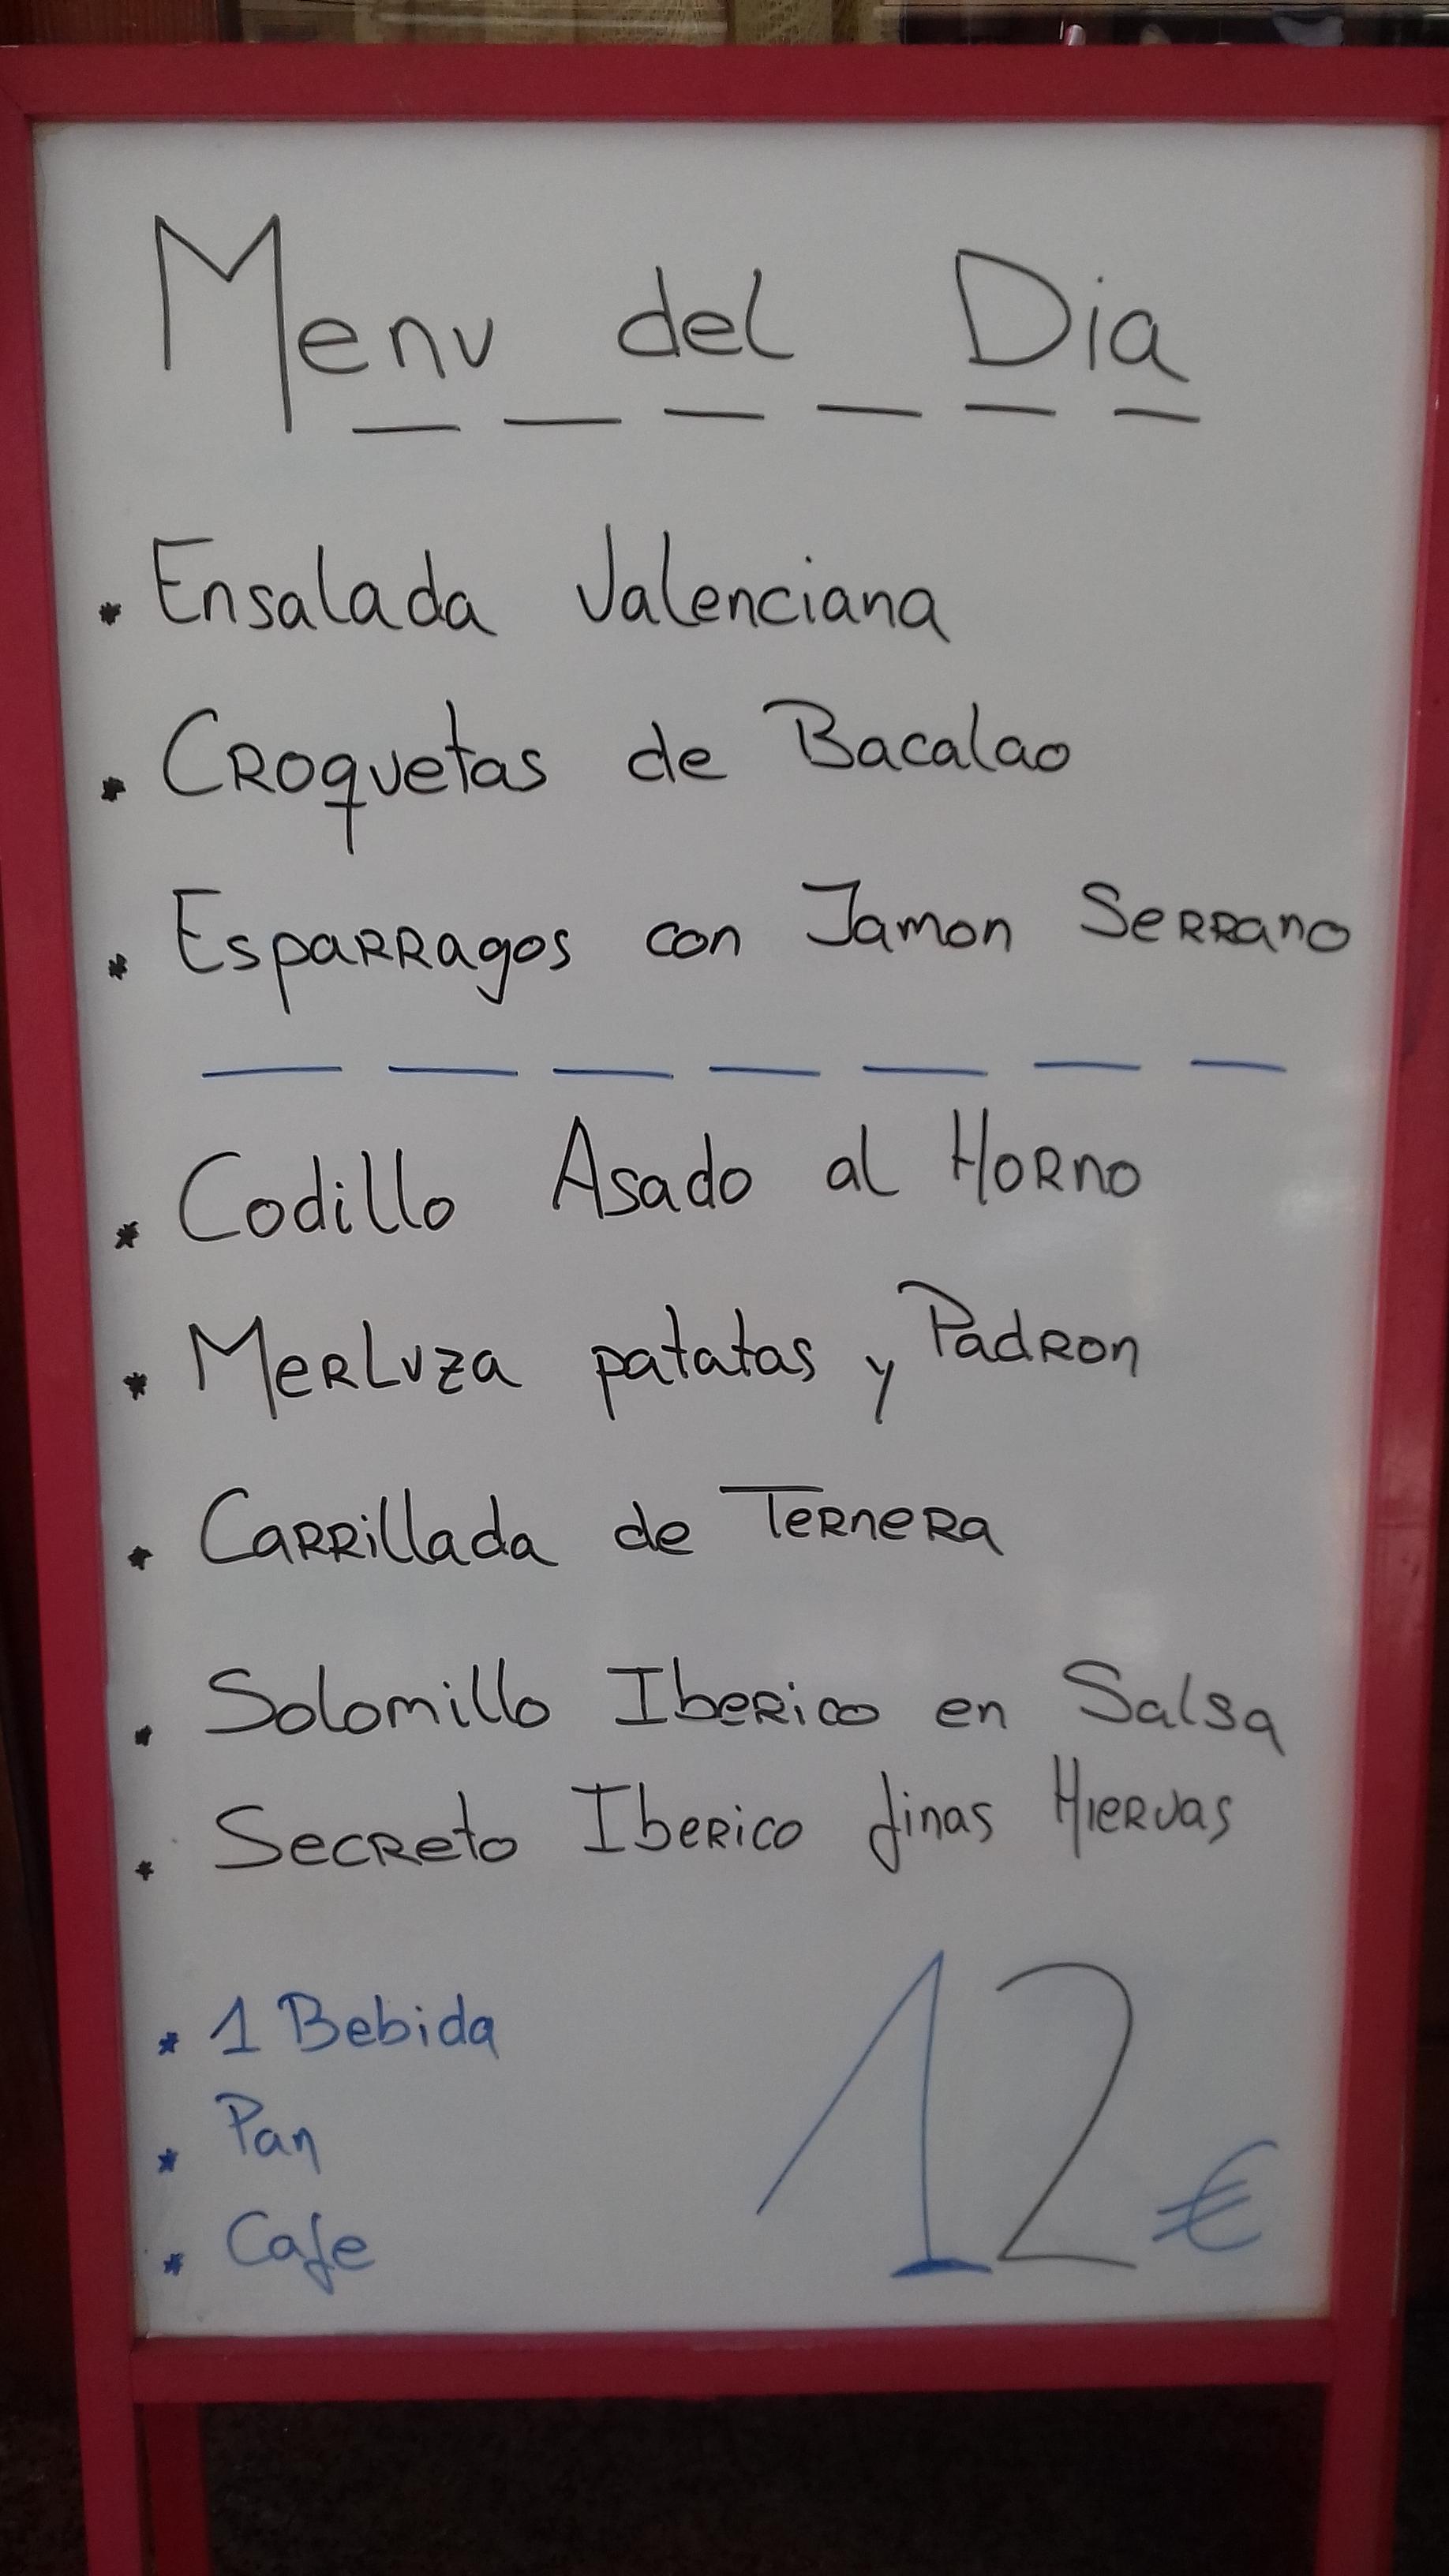 Menu del Dia
* Ensalada Valenciana
* Croquetas de Bacalao
* Esparragos con Jamon Serrano
* Codillo Asado al Horno
* Merluza patatas y Padron
* Carrillada de Ternera
* Solomillo Iberico en Salsa
* Secreto Iberico finas Hiervas
* 1 Bebida
* Pan
* Cafe
12 €